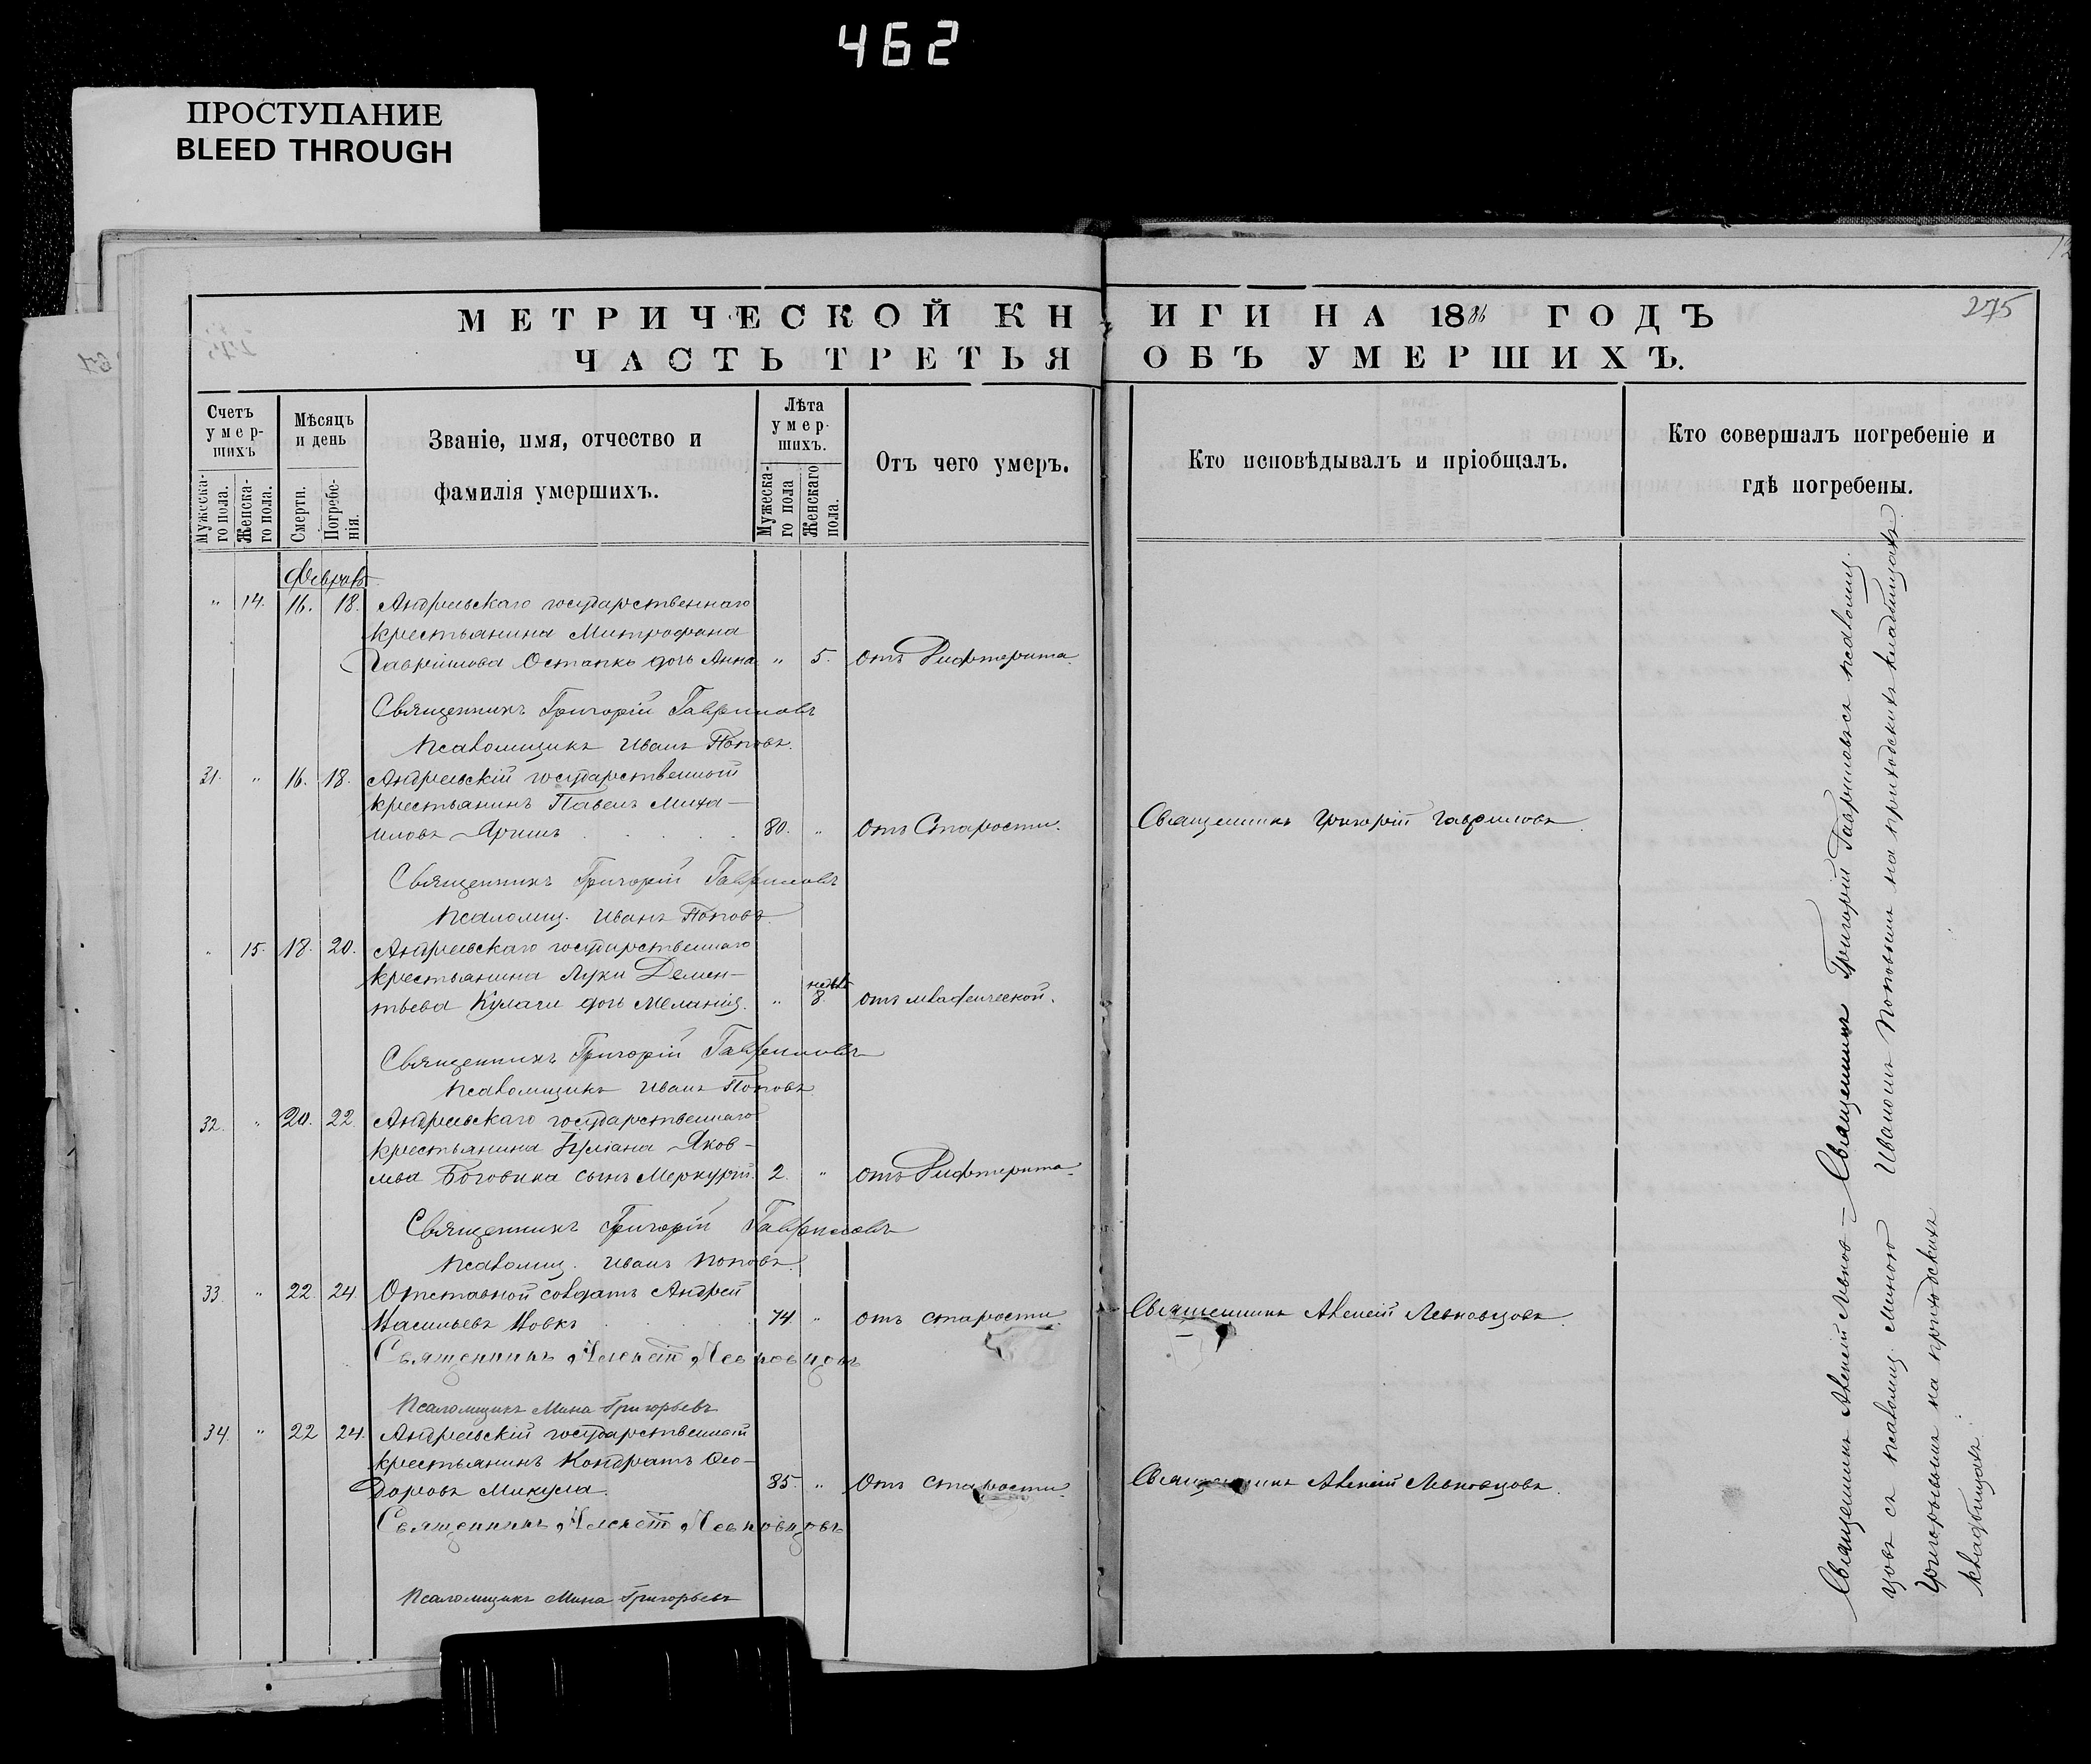 462
ПРОСТУПАНИЕ
BLEED THROUGH
275
МЕТРИЧЕСКОЙ КНИГИ НА 1886 ГОДЪ
ЧАСТЬ ТРЕТЬЯ ОБЪ УМЕРШИХЪ.
Счетъ умер-шихъ
Мужеска-го пола.
Женска-го пола.
Мѣсяцъ и день
Смерти.
Погребе-нія.
Званіе, имя, отчество и
фамилія умершихъ.
Лѣта умер-шихъ.
Мужеска-го пола
Женскаго пола.
Отъ чего умеръ.
Кто исповѣдывалъ и пріобщалъ.
Кто совершалъ погребеніе и
гдѣ погребены.
Февраль
" 14. 16. 18. Андреевскаго государственнаго
крестьянина Митрофана
Гавриилова Остапко дочь Анна " 5. отъ Дифтерита.
Священникъ Григорій Гавриловъ
Псаломщикъ Иванъ Поповъ.
31. " 16. 18. Андреевскій государственный
крестьянинъ Павелъ Миха-
иловъ Яришъ 80. " отъ Старости. Священникъ Григорій Гавриловъ
Священникъ Григорій Гавриловъ
Псаломщ. Иванъ Поповъ
" 15. 18. 20. Андреевскаго государственнаго
крестьянина Луки Демен-
тьева Кулаги дочь Меланія. " 8 отъ младенческой.
Священникъ Григорій Гавриловъ
Псаломщикъ Иванъ Поповъ
32. " 20. 22. Андреевскаго государственнаго
крестьянина Яков-
лева Боговика сынъ Меркурій. 2 " отъ Дифтерита.
Священникъ Григорій Гавриловъ
Псаломщ. Иванъ Поповъ.
33. " 22. 24. Отставной солдатъ Андрей
Васильевъ Новкъ 74 " отъ старости. Священникъ Алексій Левковцовъ.
Священникъ Алексій Левковцовъ
Псаломщикъ Мина Григорьевъ
34. " 22 24. Андреевскій государственный
крестьянинъ Кондратъ Ѳео-
доровъ Микула. 85. " Отъ старости. Священникъ Алексій Левковцовъ.
Священникъ Алексій Левковцовъ
Псаломщикъ Мина Григорьевъ
Священникъ Алексій Левков- Священникъ Григорій Гавриловъ съ псаломщ.
цовъ съ псаломщ. Миною Иваномъ Поповымъ на приходскихъ кладбищахъ.
Григорьевымъ на приходскихъ
кладбищахъ.